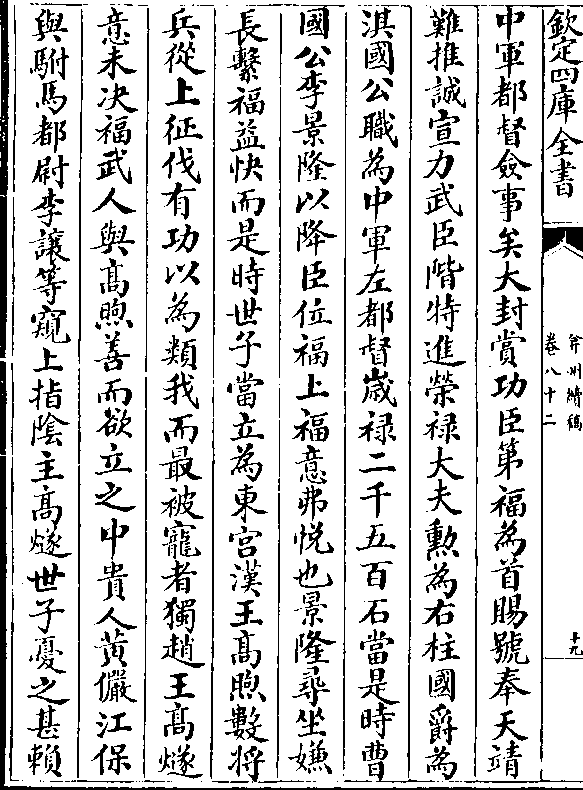 欽定四庫全書
弇州續稿
卷八十二
十九
中軍都督僉事矣大封賞功臣第福為首賜號奉天靖
難推誠宣力武臣階特進榮祿大夫勲為右柱國爵為
淇國公職為中軍左都督嵗祿二千五百石當是時曹
國公李景隆以降臣位福上福意弗悅也景隆尋坐嫌
長繫福益快而是時世子當立為東宮漢王髙煦數將
兵從上征伐有功以為類我而最被寵者獨趙王髙燧
意未决福武人與髙煦善而欲立之中貴人黄儼江保
與駙馬都尉李讓等窺上指陰主髙燧世子憂之甚賴